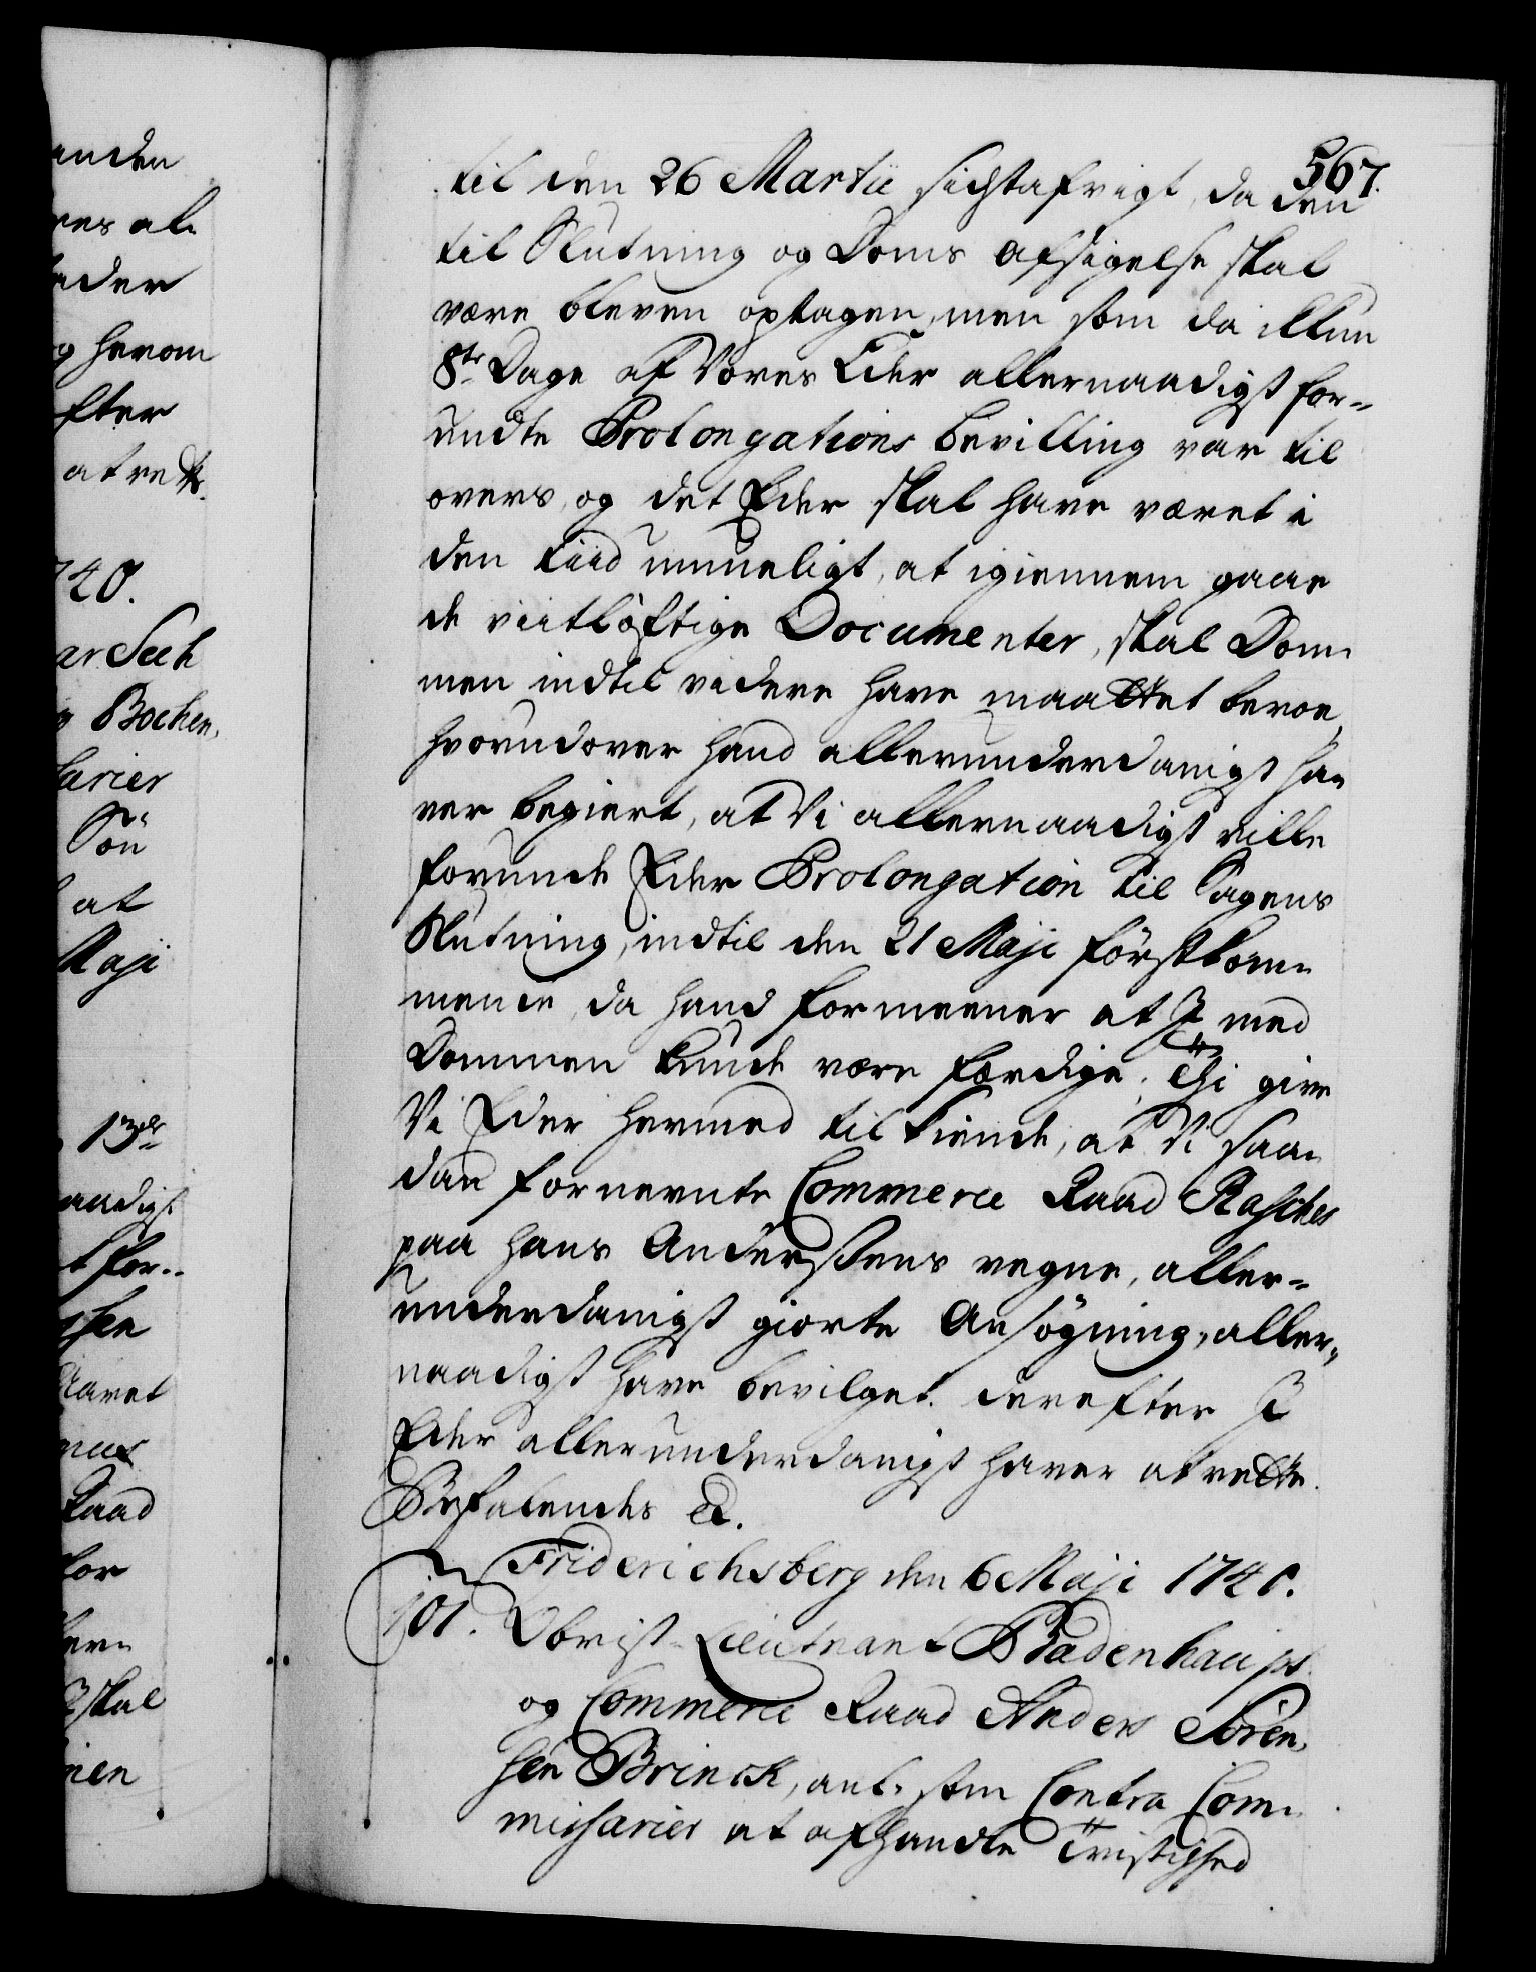 anden
res al¬
ader
g herom
fter
at rette.
740.
ar Seeh
Bochen¬
sarier
Sön
at
Maji
13de
aadigst
t for¬
Raad
for
skal
men
567.
til den 26 Martii sidstafvigt, da den
til Slutning og Doms afsigelse skal
være bleven optagen, men som da ikkun
8te Dage af Vores Eder allernaadigst for¬
undte Prolongations bevilling var til
overs, og det Eder skal have været i
den tiid umueligt, at igiennem gaae
de viitløftige Documenter, skal Dom¬
men indtil videre have maattet beroe,
hvorudover hand allerunderdanigst ha¬
ver begiert, at Vi allernaadigst ville
forunde Eder Prolongation til Sagens
Slutning, indtil den 21 Maji förstkom¬
mende, da hand formeener at I med
Dommen kunde være færdige; Thi give
Vi Eder hermed tilkiende, at Vi saa¬
dan fornevnte Commerce Raad Rasches
paa Hans Anderssens vegne, aller¬
underdanigst giorte Ansögning, aller¬
naadigst have bevilget. derefter I
Eder allerunderdanigst haver at rette.
Befalendes etc.
Friderichsberg den 6 Maji 1740.
101. Obrist-Lieutnant Badenhaupt
og Commerce Raad Anders Sören¬
sen Brinck, anl: som Contra Com¬
missarier at afhandle Tvistighed